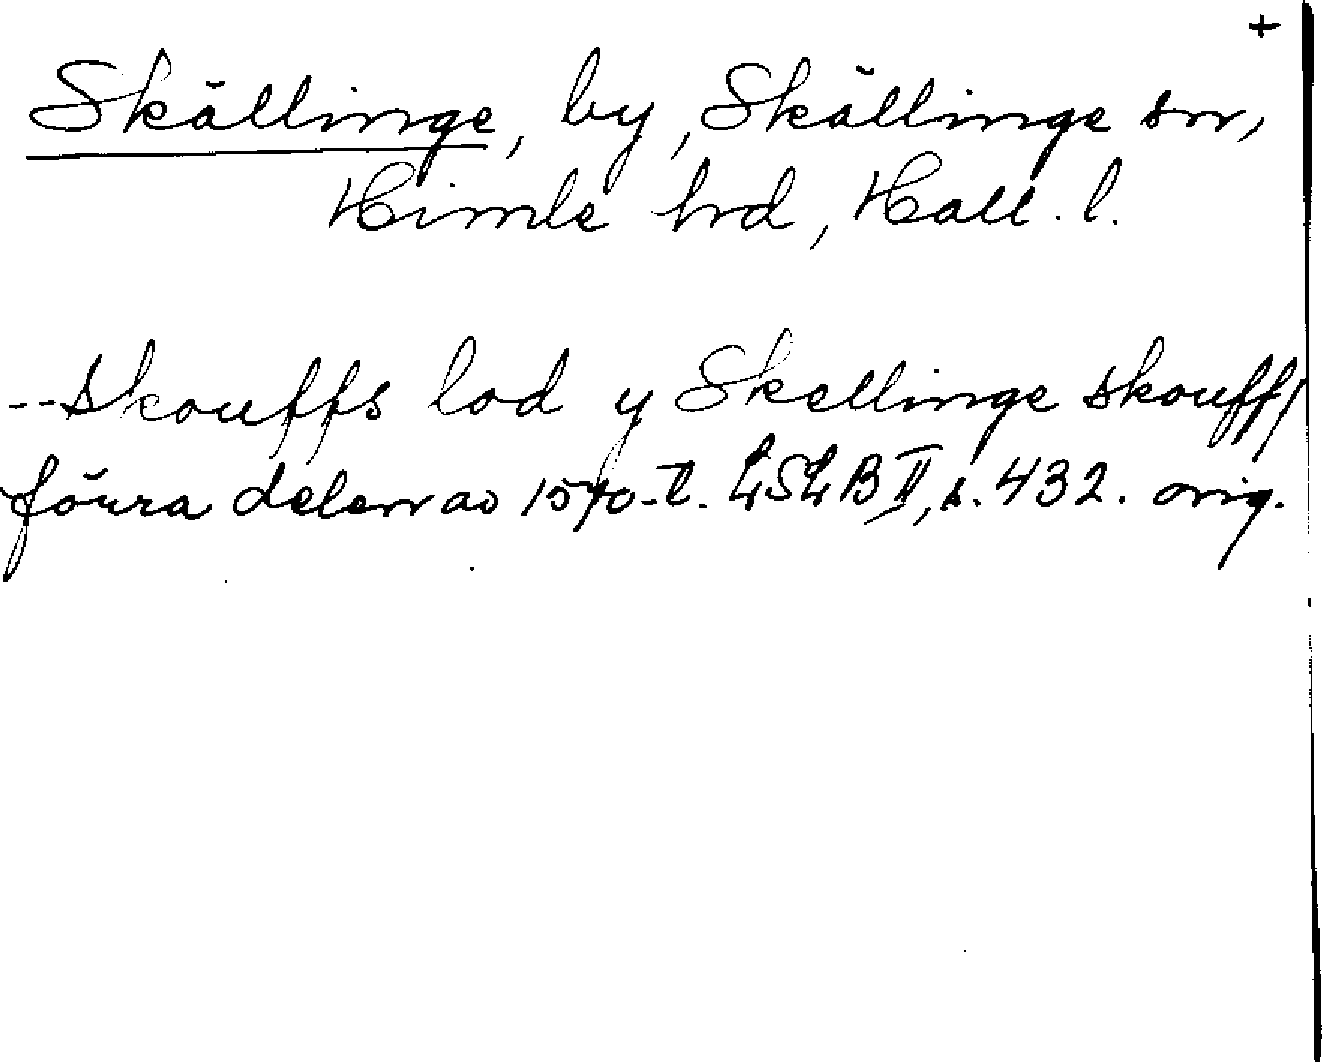 +
Skällinge, by, Skällinge sn,
Himle hrd, Hall. l.
--skouffs lod y Skellinge skouff/
förra delen av 1570-t. LSLB II, s. 432. orig.